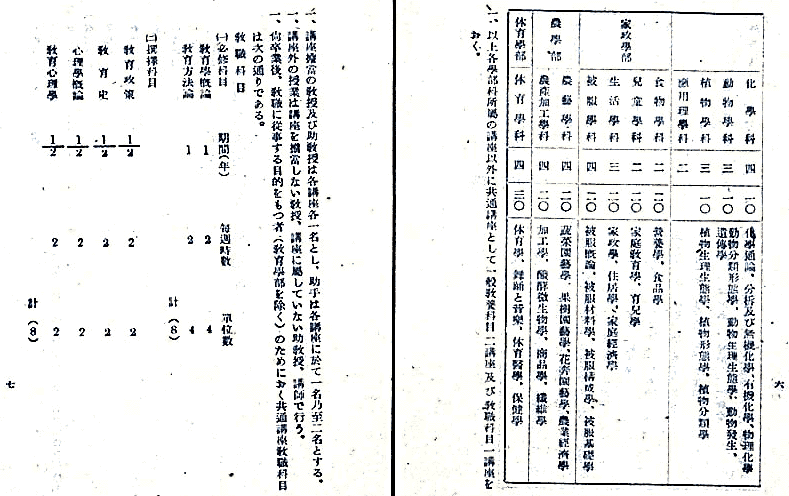 化學科 四 一〇 化學通論、分析及び無機化學、有機化學、物理化學
動物學科 三 一〇 動物分類形態學、動物生理生態學、動物發生、遺傳學
植物學科 三 一〇 植物生理生態學、植物形態學、植物分類學
應用理學科 二
家政學部
食物學科 二 一〇 營養學、食品學
兒童學科 二 一〇 家庭教育學、育兒學
生活學科 三 二〇 家政學、住居學、家庭經濟學
被服學科 四 一〇 被服概論、被服材料學、被服構成學、被服基礎學
農學部
農藝學科 四 二〇 蔬菜園藝學、果樹園藝學、花卉園藝學、農業經濟學
農產加工學科 四 二〇 加工學、醱酵微生物學、商品學、纖維學
体育學部
体育學科 四 三〇 体育學、舞踊と音樂、体育醫學、保健學
一、以上各學部科所屬の講座以外に共通講座として一般教養科目二講座及び教職科目一講座を
おく。
六
一、講座擔當の教授及び助教授は各講座各一名とし、助手は各講座に於て一名乃至二名とする。
一、講座外の授業は講座を擔當しない教授、講座に屬していない助教授、講師で行う。
一、尙卒業後、教職に從事する目的をもつ者(教育學部を除く)のためにおく共通講座教職科目
は次の通りである。
教職科目
(一)必修科目 期間(年) 每週時數 單位數
教育學概論 1 2 4
教育方法論 1 2 4
計(8)
(二)選擇科目
教育政策 1/2 2 2
教育史 1/2 2 2
心理學概論 1/2 2 2
教育心理學 1/2 2 2
計(8)
七